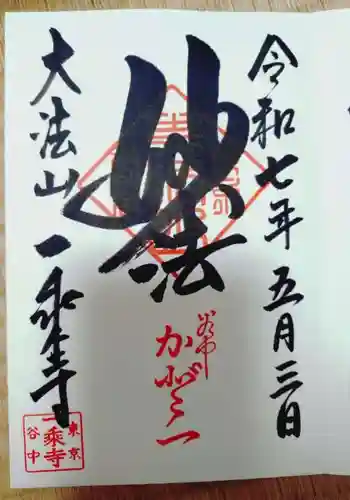 令和七年五月三日
妙法
谷中
大法山一乘寺
東京
一乘寺
谷中